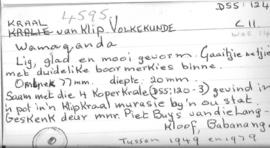 DSS: 124
4595.
KRAAL
KRALIE van Klip VOLKEKUNDE
C 11
Wamaganda
Lig, glad en mooi gevorm. Gaaitjie netjies
met duidelike boormerkies binne.
Omtrek 77 mm. diepte 20 mm.
Saam met die 4 Koperkrale (DSS:120-3) gevind in
'n pot in 'n Klipkraal murasie by 'n ou stat.
Geskenk deur mnr. Piet Buys van die Lang-
Kloof, Gabanang.
Tussen 1949 en 1979